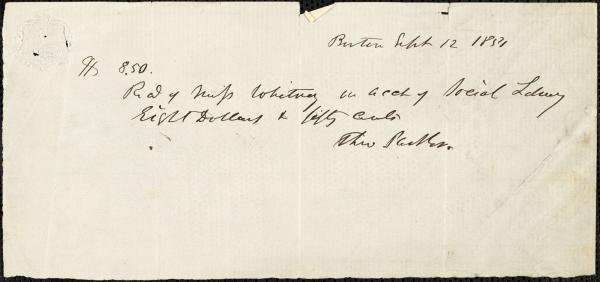 Boston Sept 12 1854
$ 8.50.
Recd of Miss Whitney on acct of Social Library
Eight Dollars & fifty cents
Theo Parker